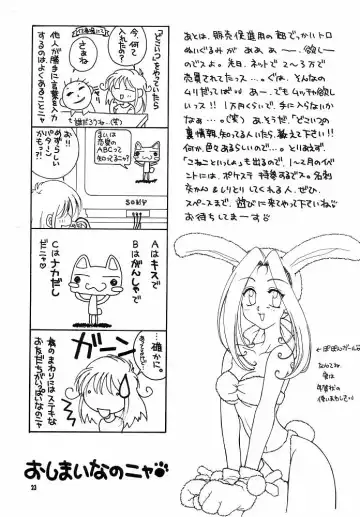 あとは、販売促進用の超でっかいトロ
ぬいぐるみが ああ あ 一 一、欲しい
のですよ。先日、ネットで 2〜3万で
売買されてたっス…。ぐは、そんなの
ムリだしてばYO……。あ、でも、ムッチャ欲し
いっス!! 1万円くらいで、手に入らないか
なぁ…。(笑) あ、そうだ。「どこいつ」の
裏情報、知ってる人いたら、教えて下さい!!
何か、色々あるらしいので…。とりあえず、
「こねこもいっしょ」も出るので、1〜2月のイベ
ントには、ポケステ 持参するでス。名刺
交かん&しりとりしてくれる人、ぜひ、
スペースまで、遊びに来てやって下さいね♡
お待ちしてまーす♡
「どこいつ」をやっていたら
今、何て
入れたの?
さぁね
も誰だろうね…(笑)
他人が勝手に言葉を入力
するのはよくあることニャ
お!!
めずらしい
パターン
かもっ?
きみは
恋愛の
ABCって
知ってるニャ?
SONY
Aはキスで
Bはがんしゃで
Cはナカだし
だニャ♡
ガーン
…確かに。
私のまわりにはステキな
お友だちがいっぱいなのニャ
おしまいなのニャ
23